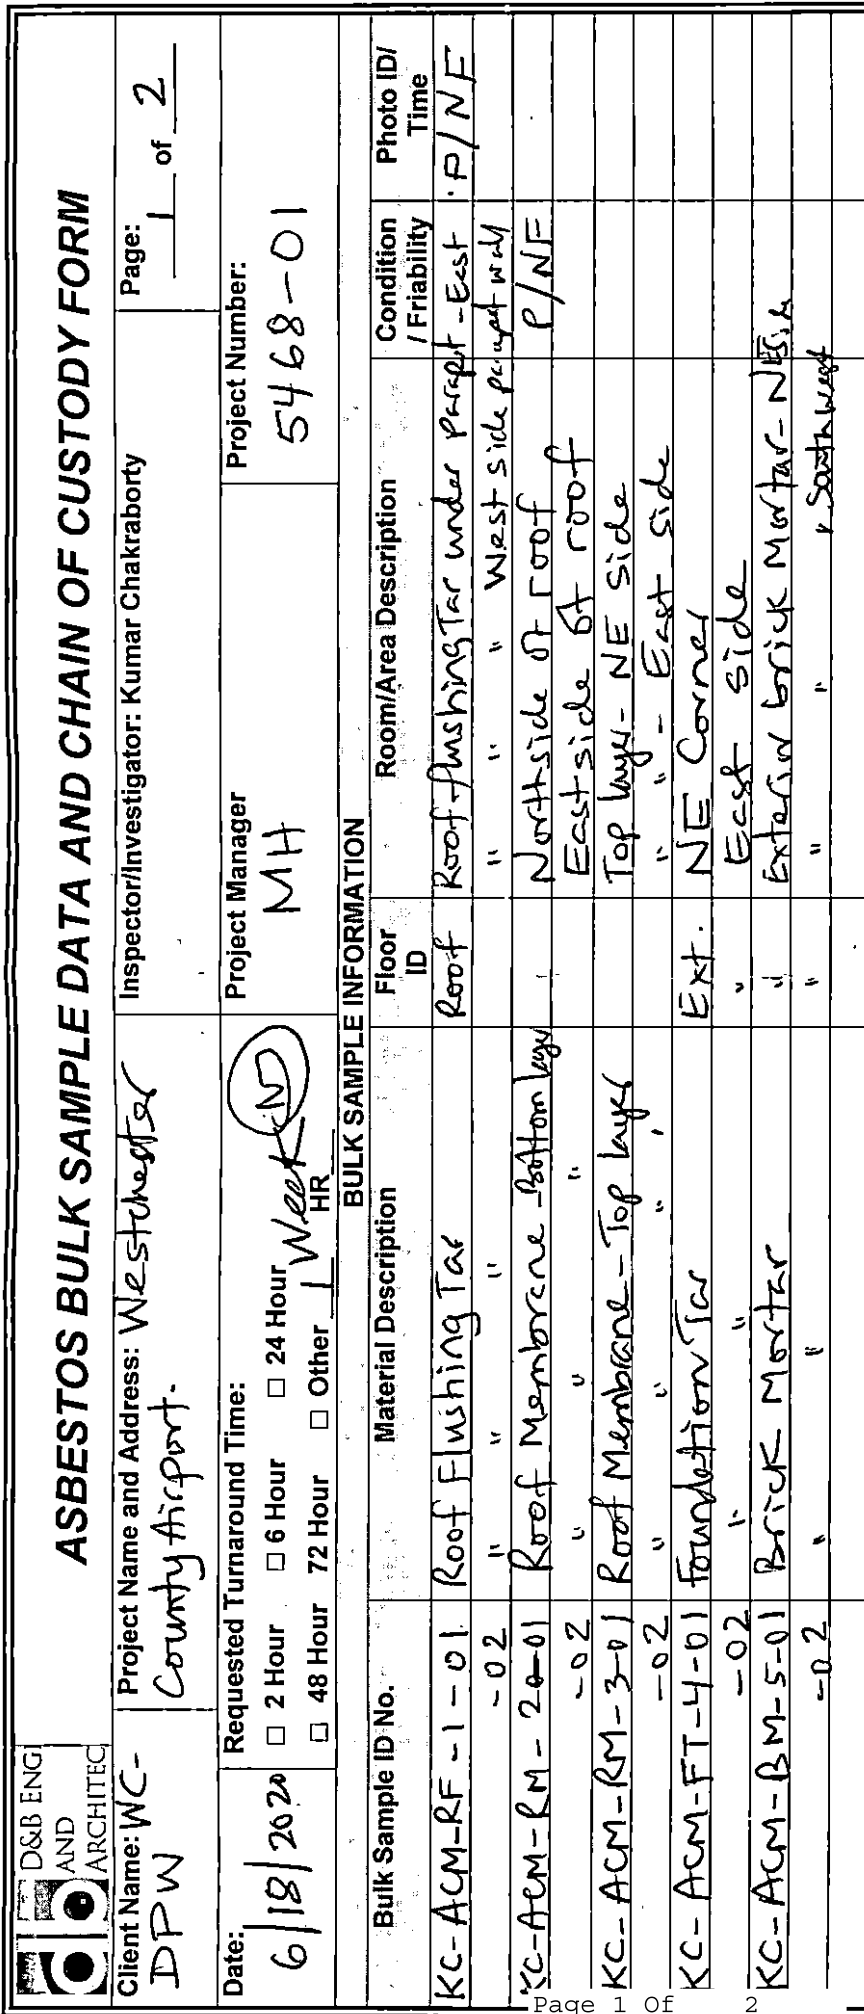 D&B ENGI
AND
ARCHITEC
ASBESTOS BULK SAMPLE DATA AND CHAIN OF CUSTODY FORM
Client Name: WC-
DPW
Project Name and Address: Westchester
County Airport.
Inspector/Investigator: Kumar Chakraborty
Page:
1 of 2
Date:
6/18/2020
Requested Turnaround Time:
□ 2 Hour □ 6 Hour □ 24 Hour
□ 48 Hour 72 Hour □ Other 1 Week HR
N
Project Manager
MH
Project Number:
5468-01
BULK SAMPLE INFORMATION
Bulk Sample ID No. Material Description Floor ID Room/Area Description Condition / Friability Photo ID/ Time
KC-ACM-RF-1-01 Roof Flushing Tar Roof Roof flushing Tar under parapet-East P/NF
-02 " " " " " " West side parapet wall
KC-ACM-RM-2-01 Roof Membrane-Bottom layer Northside of roof P/NF
-02 " " " Eastside of roof
KC-ACM-RM-3-01 Roof Membrane-Top layer Top layer-NE side
-02 " " " " " - East side
KC-ACM-FT-4-01 Foundation Tar Ext. NE Corner
-02 " " " " East side
KC-ACM-BM-5-01 Brick Mortar " Exterior brick Mortar-NE side
-02 " " " " " " Southwest
Page 1 Of 2